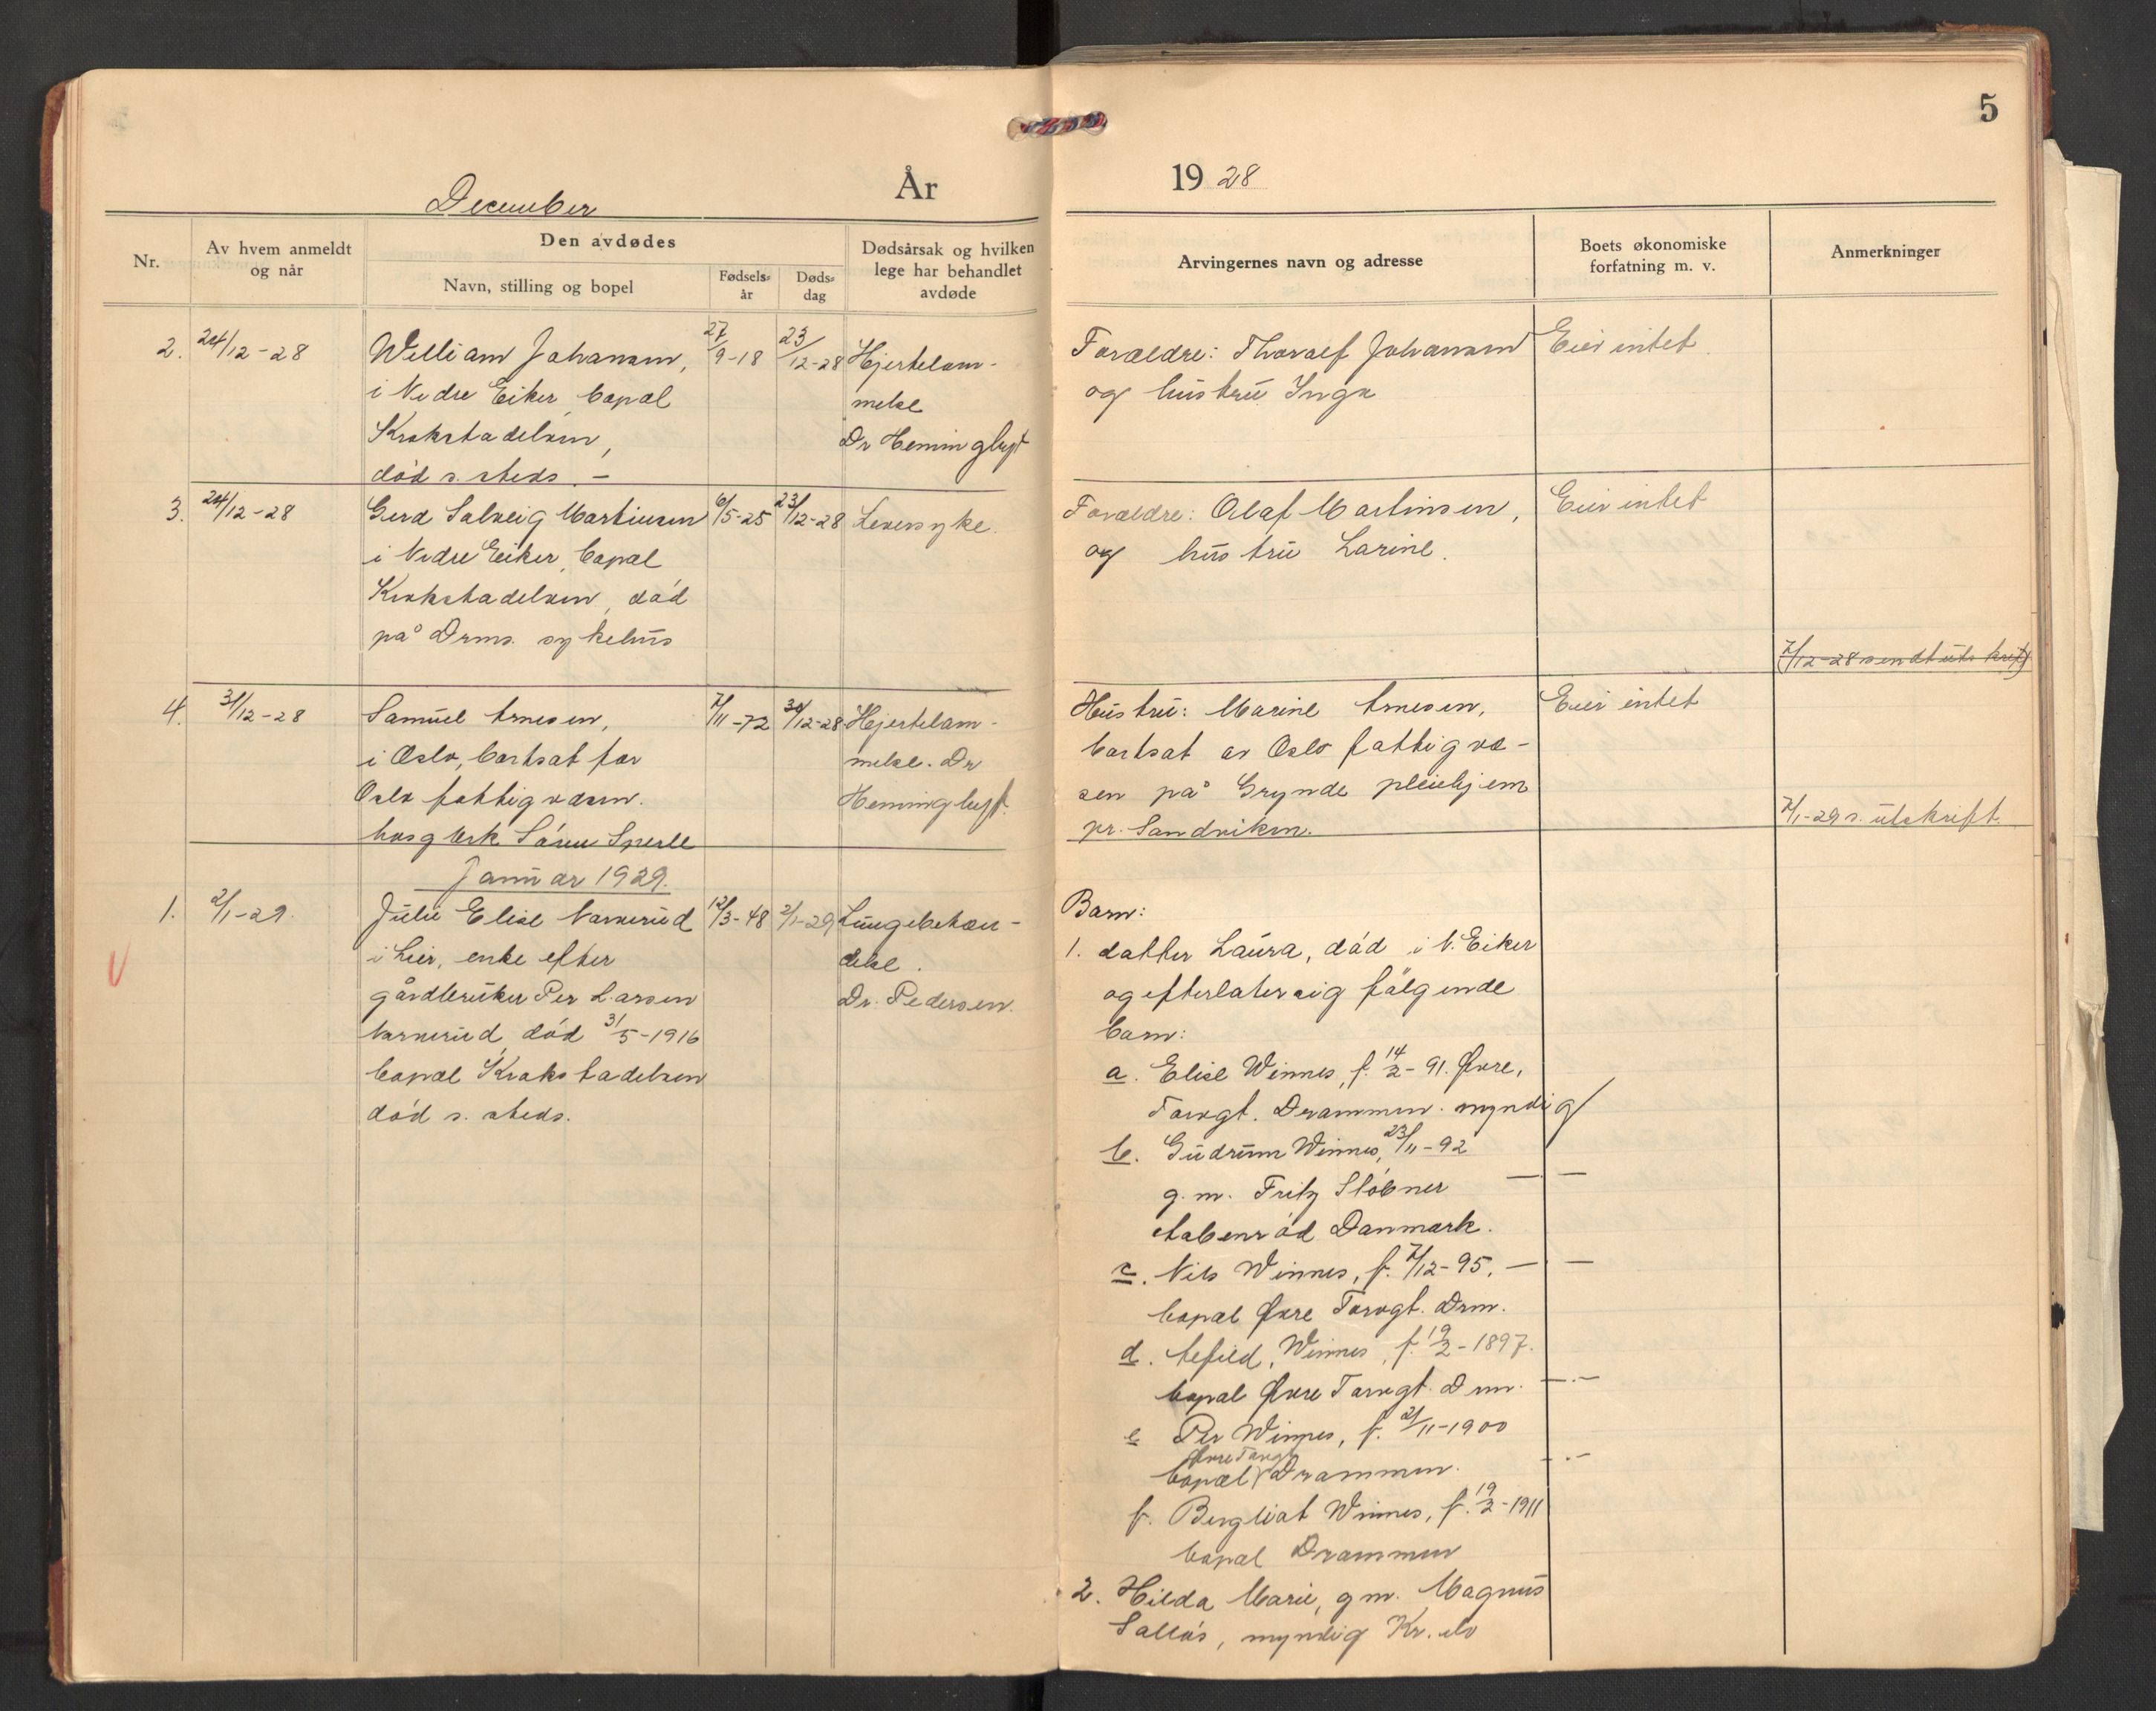 5
December År 1928
Nr.
Av hvem anmeldt
og når
Den avdødes
Navn, stilling og bopel
Fødsels-
år
Døds-
dag
Dødsårsak og hvilken
lege har behandlet
avdøde
Arvingernes navn og adresse
Boets økonomiske
forfatning m. v.
Anmerkninger
2. 24/12-28 William Johansen, 27/9-18 23/12-28 Hjertelam-
i Nedre Eiker, bopæl melse
Krokstadelven, Dr Heming
død s. steds. -
Forældre: Thoralf Johansen Eier intet
og hustru Inga
3. 24/12-28 Gerd Solveig Martinsen 6/5-25 23/12-28 Leversyke.
i Nedre Eiker, bopæl
Krokstadelven, død
på Drms. sykehus
Forældre: Olaf Martinsen, Eier intet
og hustru Larine.
7/12-28 sendt utskrift
4. 31/12-28 Samuel Arnesen, 7/11-72 30/12-28 Hjertelam-
i Oslo, bortsat for melse. Dr
Oslo fattigvæsen.
hos gbrk. Søren Sperle
Hustru: Marine Arnesen, Eier intet
bortsat av Oslo fattigvæ-
sen på Grynde pleiehjem
pr. Sandviken.
7/1-29 s. utskrift.
Januar 1929.
1. 2/1-29. Julie Elise Narverud 12/3-48 2/1-29 Lungebetæn-
i Lier, enke efter delse.
gårdbruker Per Larsen Dr. Pedersen.
Narverud, død 31/5-1916
bopæl Krokstadelven
død s. steds.
Barn:
1. datter Laura, død i N. Eiker
og efterlater sig følgende
barn:
a. Elise Winnes, f. 14/2-91. Øvre,
Torvgt. Drammen. myndig
b. Gudrun Winnes, 23/11-92
g. m. Fritz Støbner — —
Aabenrød Danmark.
c. Nils Winnes, f. 7/12-95. — —
bopæl Øvre Torvgt. Drm.
d. Winnes, f. 19/2-1897.
bopæl Øvre Torvgt. Drm. —.—
e Per Winnes, f. 21/11-1900
Øvre Torvgt
bopæl Drammen. -.-
f. Bergliot Winnes, f. 19/2-1911
bopæl Drammen
2. Hilda Marie, g m. Magnus
Solløs, myndig Kr. elv